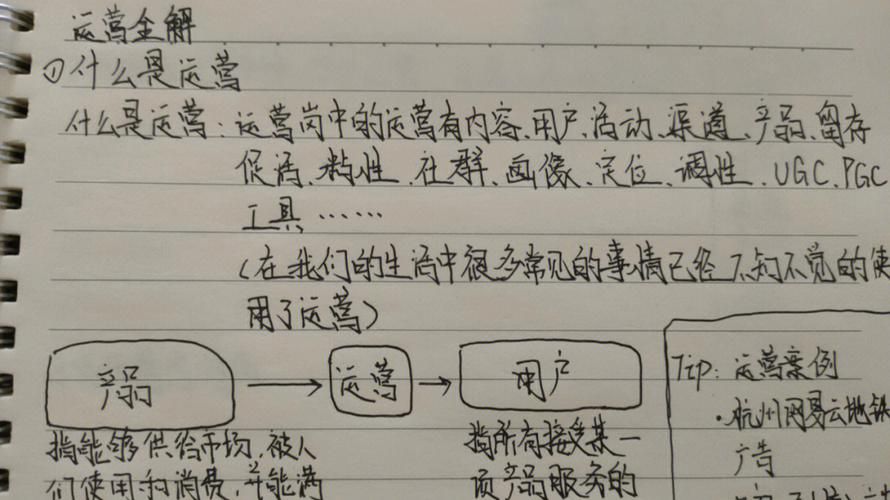 运营全解
①什么是运营
什么是运营：运营岗中的运营有内容、用户、活动、渠道、产品、留存
促活、粘性、社群、画像、定位、调性、UGC、PGC
工具……
（在我们的生活中很多常见的事情已经不知不觉的使
用了运营）
产品 → 运营 → 用户
指能够供给市场，被人
们使用和消费，并能满
指所有接受某一
项产品服务的
Tip：运营案例
·杭州网易云地铁
广告